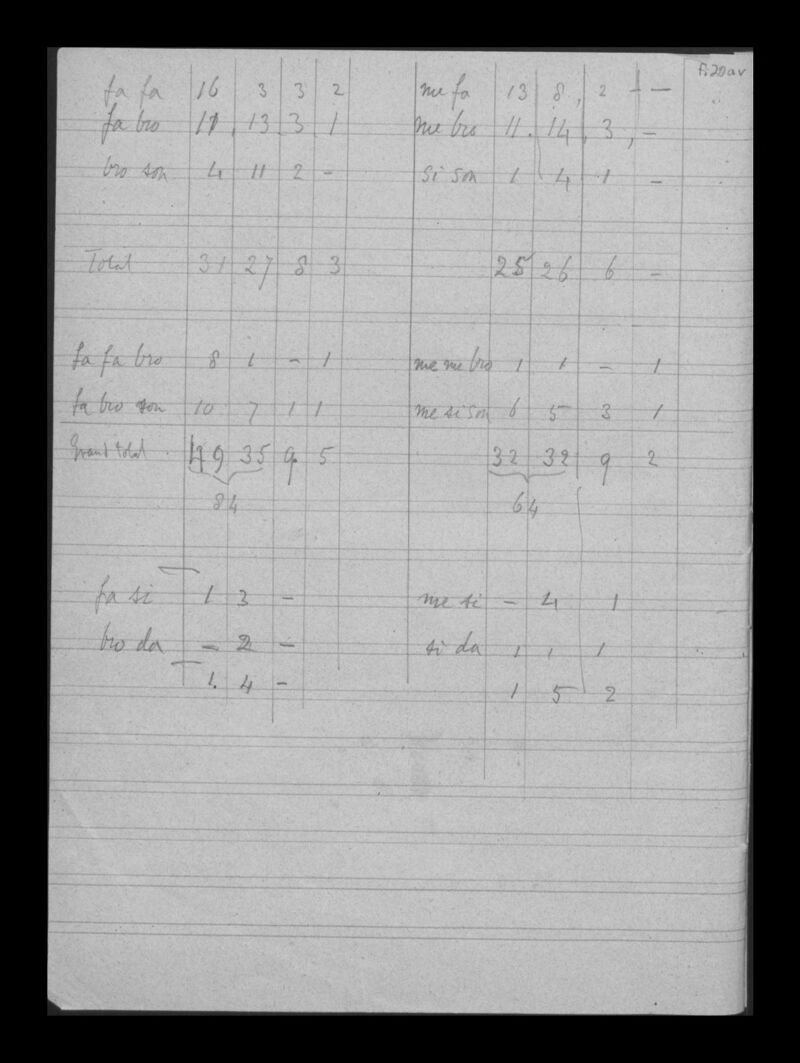 F.20av
fa fa 16 3 3 2 me fa 13 8, 2 - -
fa bro 11, 13 3 1 me bro 11. 14, 3, -
bro son 4 11 2 - si son 1 4 1 -
Total 31 27 8 3 25 26 6 -
fa fa bro 8 1 - 1 me me bro 1 1 - 1
fa bro son 10 7 1 1 me si son 6 5 3 1
Grand total 49 35 9 5 32 32 9 2
84 64
fa si 1 3 - me si - 4 1
bro da - 2 - si da 1 1 1
1. 4 - 1 5 2